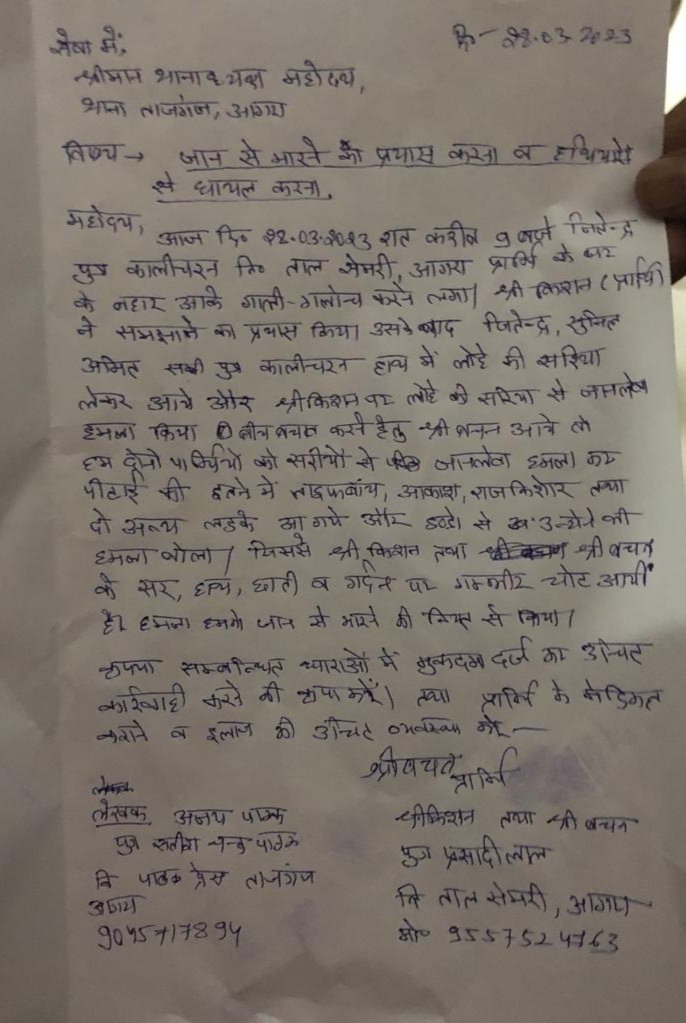 सेवा में,
दि- 28.03.2023
श्रीमान थानाध्यक्ष महोदय,
थाना ताजगंज, आगरा
विषय → जान से मारने का प्रयास करना व हथियारों
से घायल करना.
महोदय, आज दि० 28.03.2023 रात करीब 9 बजे जितेन्द्र
पुत्र कालीचरन नि० ताल सेमरी, आगरा प्रार्थि के घर
के बहार आके गाली-गलोच करने लगा। श्री किशन (प्रार्थि)
ने समझाने का प्रयास किया। उसके बाद जितेन्द्र, सुनिल
अमित सभी पुत्र कालीचरन हाथ में लोहे की सरिया
लेकर आये और श्रीकिशन पर लोहे की सरिया से जानलेवा
हमला किया बीच बचाव करने हेतु श्री बचन आये तो
हम दोनो प्रार्थियो को सरीयो से जानलेवा हमला कर
पीटाई की इतने में आकाश, राजकिशोर तथा
दो अन्य लडके आ गये और डण्डो से उन्होने भी
हमला बोला। जिससे श्री किशन तथा श्री बचन
के सर, हाथ, छाती व गर्दन पर गम्भीर चोट आयी
है। हमला हमको जान से मारने की नियत से किया।
कृपया सम्बन्धित धाराओं में मुकदमा दर्ज कर उचित
कार्रवाही करने की कृपा करें। तथा प्रार्थि के मेडिकल
कराने व इलाज की उचित व्यवस्था करें—
श्रीबचन
प्रार्थि
लेखक अजय पाठक
श्रीकिशन तथा श्री बचन
पुत्र सतीश चन्द्र पाठक
पुत्र प्रसादी लाल
नि पाठक प्रेस ताजगंज
नि ताल सेमरी, आगरा
आगरा
9045717894
मो० 9557524763